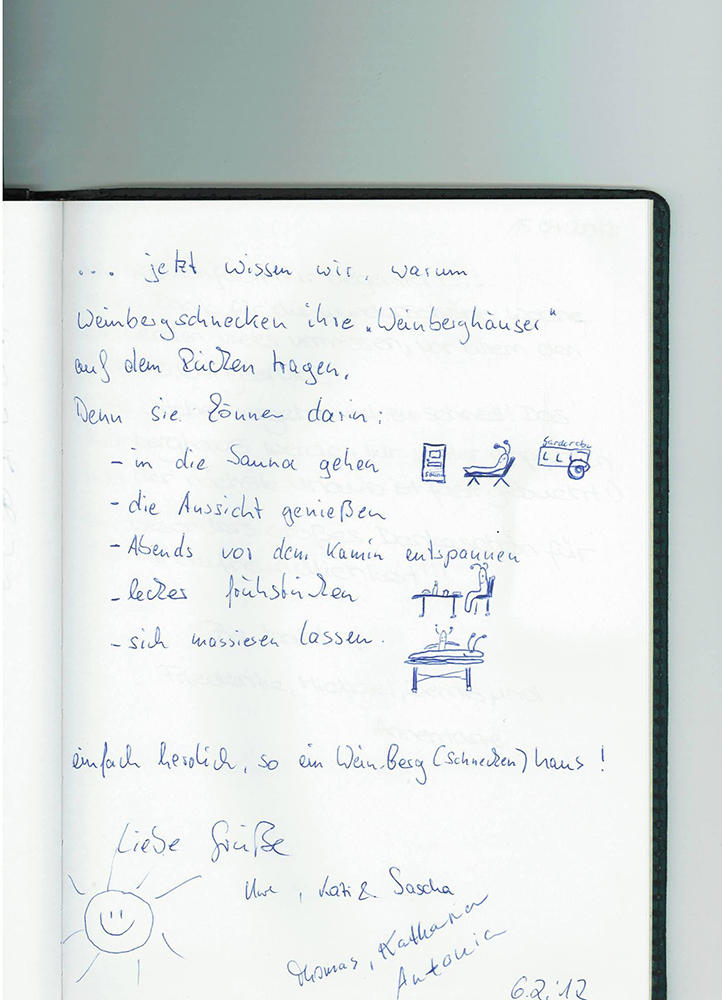 ... jetzt wissen wir, warum
Weinbergschnecken ihre „Weinberghäuser“
auf dem Rücken tragen.
Denn sie können darin:
- in die Sauna gehen
Sauna
Garderobe
- die Aussicht genießen
- Abends vor dem Kamin entspannen
- lecker frühstücken
- sich massieren lassen.
einfach herrlich, so ein Wein-Berg(schnecken)haus!
Liebe Grüße
Uwe, Kati & Sascha
Thomas, Katharina
Antonia
6.2.'12